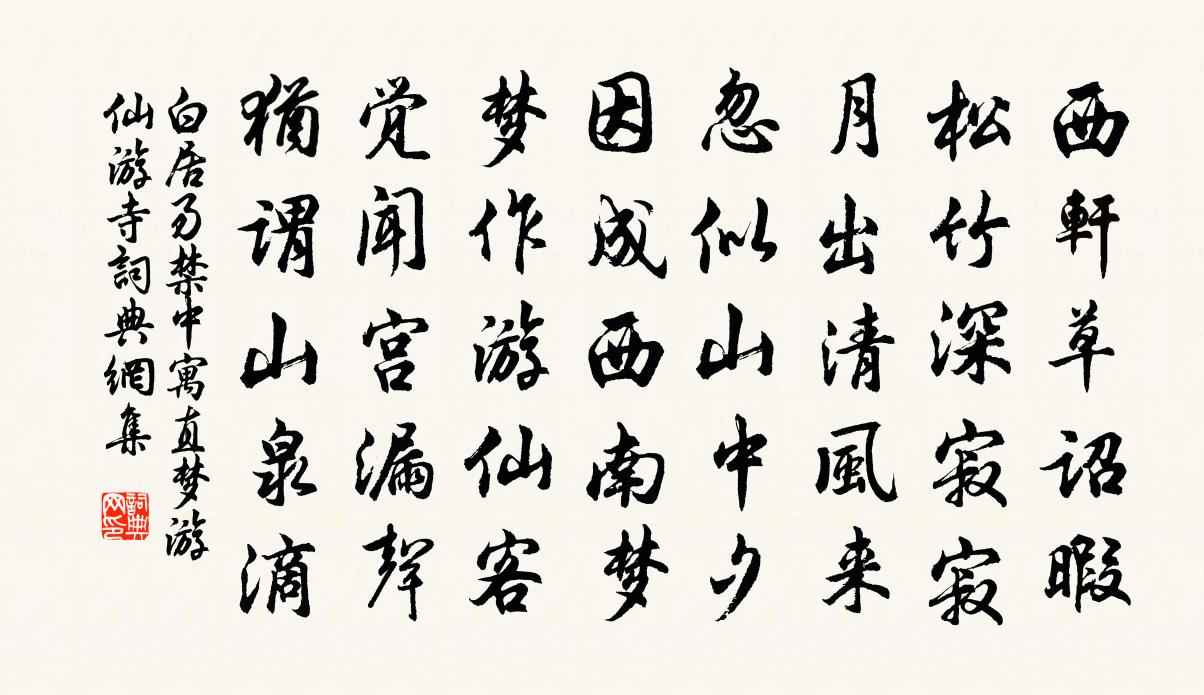 西軒草詔暇
松竹深寂寂
月出清風来
忽似山中夕
因成西南梦
梦作游仙客
覚闻宫漏聲
猶謂山泉滴
白居易禁中寓直梦游
仙游寺詞典網集
詞典
网印